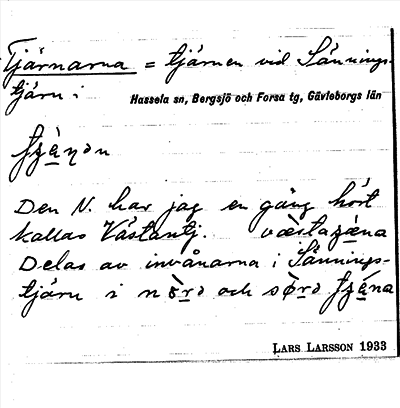 Tjärnarna = tjärnen vid Sännings-
tjärn i
Hassela sn, Bergsjö och Forsa tg, Gävleborgs län
Den N. har jag en gång hört
kallas Västantj.
Delas av invånarna i Sännings-
tjärn i nørə och sørə
LARS LARSSON 1933